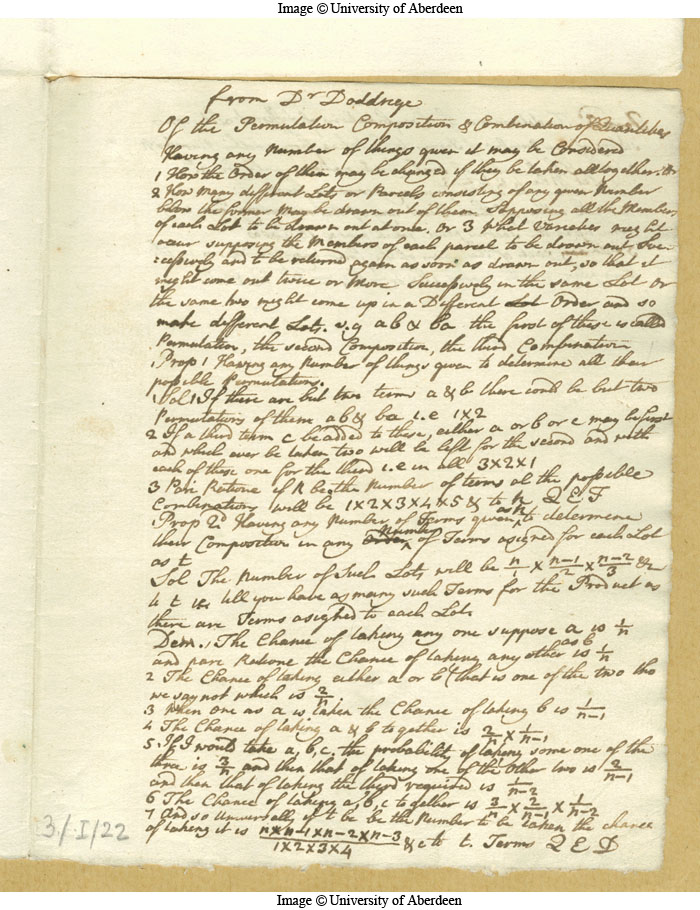 Image © University of Aberdeen
from Dr Doddrige
Of the Permutation Composition & Combination of Quantities
Having any Number of things given it may be Considered
1 How the Order of them may be changed if they be taken alltogether. Or
2 How many different Lots or Parcels consisting of any given Number
below the former may be drawn out of them Supposing all the Members
of each Lot to be drawn out at once. Or 3 What Varieties might
occur supposing the Members of each parcel to be drawn out Suc-
=cessively and to be returned again as soon as drawn out, so that it
might come out twice or more Successively in the same Lot or
the same two might come up in a Different Lot Order and so
make different Lots. e.g ab & ba the first of these is called
Permutation, the second Composition, the third Combination
Prop 1 Having any Number of things given to determine all their
possible Permutations.
Sol 1 If there are but two terms a & b there could be but two
Permutations of them ab & ba i.e 1x2
2 If a third term c be added to these, either a or b or c may be first
and which ever be taken two will be left for the second and with
each of these one for the third i.e in all 3x2x1
3 Pari Ratione if n be the Number of terms al the possible
Combinations will be 1x2x3x4x5 & to n Q E F
Prop 2d Having any Number of Terms given as n to determine
their Composition in any Order Number of Terms asigned for each Lot
as t
Sol The Number of Such Lots will be n/1 x n-1/2 x n-2/3 &c
till you have as many such Terms for the Product as
there are Terms asigned to each Lot.
Dem. 1 The Chance of taking any one suppose a is 1/n
and pari Ratione the Chance of taking any other as b is 1/n
2 The Chance of taking either a or b (that is one of the two tho
we say not which is 2/n
3 When one as a is taken the Chance of taking b is 1/n-1
4 The Chance of taking a & b together is 2/n x 1/n-1
5. If I would take a, b, c, the probability of taking some one of the
three is 3/n and then that of taking one of the other two is 2/n-1
and then that of taking the third required is 1/n-2
6 The Chance of taking a, b, c together is 3/n x 2/n-1 x 1/n-2
7 And so universally if t be the Number to be taken the chance
of taking it is n x n-1 x n-2 x n-3/1x2x3x4 &c to t. Terms Q E D
3/I/22
Image © University of Aberdeen